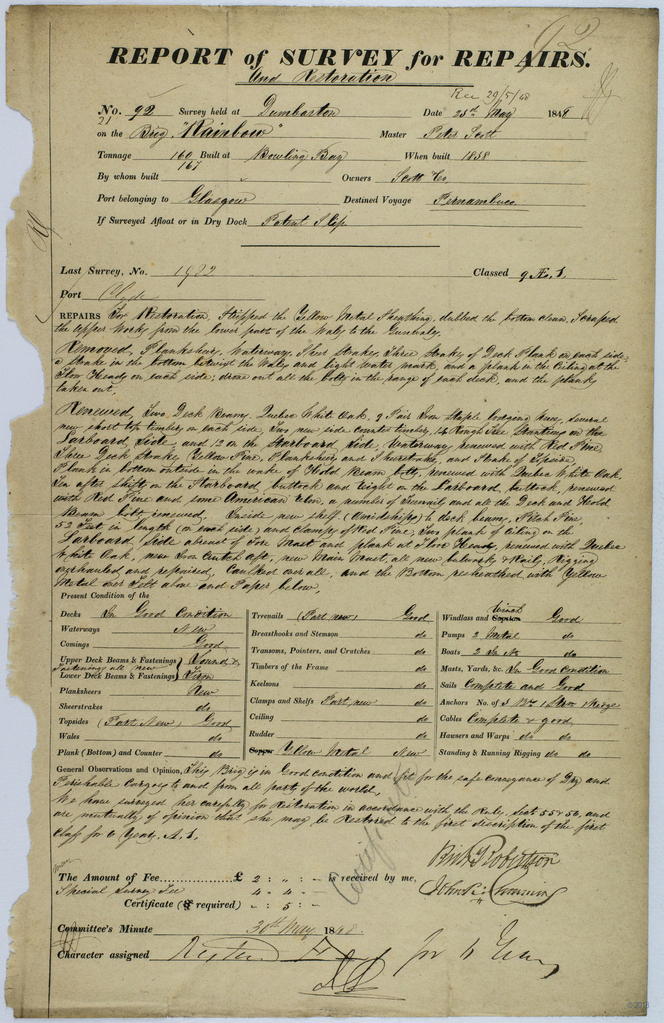 92
REPORT of SURVEY for REPAIRS.
And Restoration
Rec 29/5/48
No. 92 Survey held at Dumbarton Date 25th May 1848
21
on the Brig "Rainbow" Master Peter Scott
Tonnage 160 Built at Bowling Bay When built 1838
167
By whom built Owners Scott Co
Port belonging to Glasgow Destined Voyage Pernambuco
If Surveyed Afloat or in Dry Dock Patent Slip
Last Survey, No. 1922 Classed 9 Æ. 1
Port Clyde
REPAIRS For Restoration, Stripped the Yellow Metal Sheathing, dubbed the bottom clean, Scraped
the Upper Works from the lower part of the Wales to the Gunwales.
Removed, Planksheers, Waterways, Thick Strakes, Three Strakes of Deck Plank on each side,
a Strake in the bottom betwixt the Wales and light Water mark, and a plank in the Ceiling at the
Floor Heads on each side; drove out all the bolts in the range of each deck, and the planks
taken out.
Renewed, Two Deck Beams, Quebec White Oak, 9 Pair Iron Staple lodging knees, several
new short top timbers on each side, Two new side counter timbers, 14 Rough Tree Stantions on the
Larboard Side, and 12 on the Starboard Side, Waterways renewed with Red Pine
Three Deck Strakes Yellow Pine, Planksheers and Sheerstrakes, and Strake of Topside,
Plank in bottom outside in the wake of Hold Beam bolts, renewed with Quebec White Oak,
Ten after shifts on the Starboard, buttock and Eight on the Larboard buttock, renewed
with Red Pine and some American Elm, a number of Treenails and all the Deck and Hold
Beam bolts renewed. Inside new shelf (Amidships) to deck beams, Pitch Pine,
52 Feet in length (on each side) and clamps of Red Pine, Two planks of ceiling on the
Larboard Side abreast of Fore Mast and plank at Floor Heads, renewed with Quebec
White Oak, new Iron Crutch aft, new Main Mast, all new bulwarks & Rails, Rigging
overhauled and repaired, Caulked over all, and the Bottom resheathed with Yellow
Metal over Felt above and Paper below.
Present Condition of the
Decks In Good Condition
Waterways New
Comings Good
Upper Deck Beams & Fastenings } Sound &
Fastenings all New
Lower Deck Beams & Fastenings } Firm
Planksheers New
Sheerstrakes do
Topsides (Part New) Good
Wales do
Plank (Bottom) and Counter do
Treenails (Part new) Good
Breasthooks and Stemson do
Transoms, Pointers, and Crutches do
Timbers of the Frame do
Keelsons do
Clamps and Shelfs Part new do
Ceiling do
Rudder do
Copper Yellow Metal New
Windlass and Capstan Winch Good
Pumps 2 Metal do
Boats 2 In No do
Masts, Yards, &c. In Good Condition
Sails Complete and Good
Anchors No. of 3 Br. 1 Stream 1 Kedge
Cables Complete & good
Hausers and Warps do do
Standing & Running Rigging do do
General Observations and Opinion, This Brig is in Good condition and fit for the safe conveyance of Dry and
Perishable Cargoes to and from all parts of the world.
We have surveyed her carefully for Restoration in accordance with the Rules, Sect 55 & 56, and
are mutually of opinion that she may be Restored to the first description of the first
Class for 6 Years, A. 1.
Robertson
The Amount of Fee £ 2 : " : - is received by me,
Special Survey Fee 4 - 4 -
Certificate (if required) - : 5 : -
Certificate
Committee's Minute 30th May 1848.
Character assigned for 6 Years
©2018